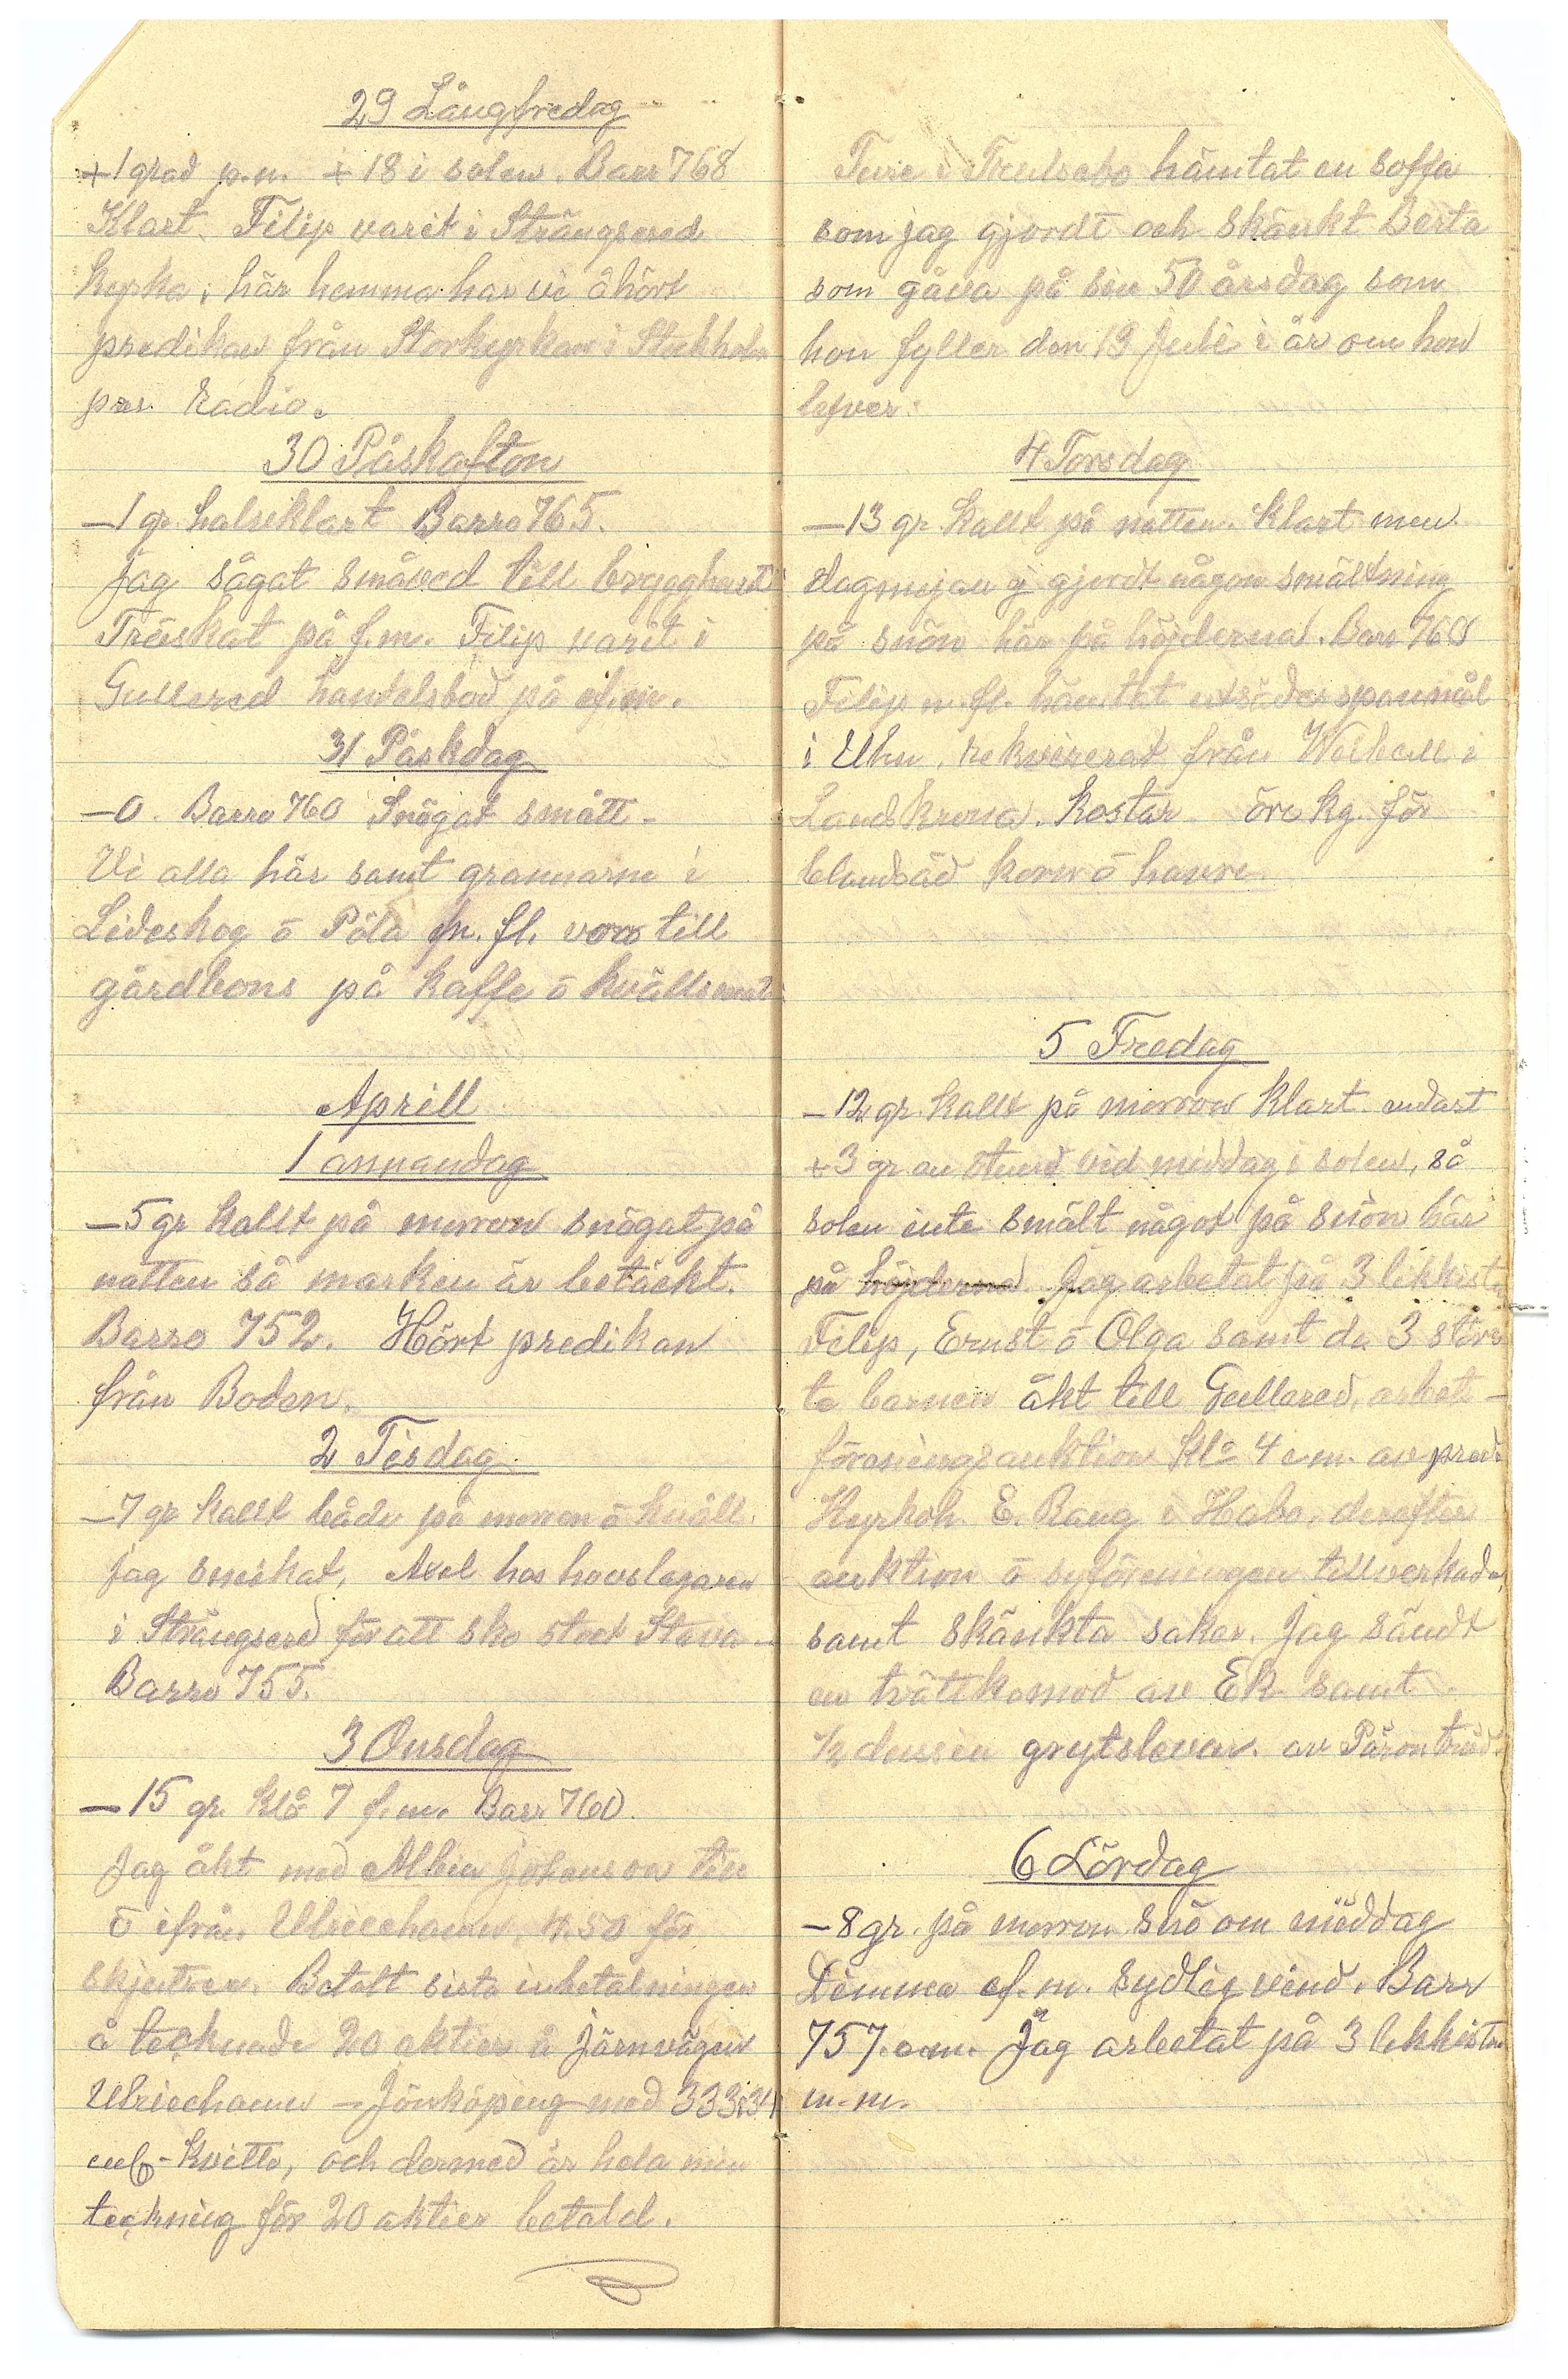 29 Långfredag
+1 grad p.m. +18 i solen. Barr 768
Klart. Filip varit i Strängsered
kyrka, här hemma har vi åhört
predikan från Storkyrkan i Stockholm
per Radio.
30 Påskafton
-1 gr. halvklart Barro 765.
Jag sågat småved till brygghuset
Träskat på f.m. Filip varit i
Gullered handelsbod på ef.m.
31 Påskdag
-0. Barro 760 Snögat smått -
Vi alla här samt grannarne i
Lideskog ō Påla m. fl. voro till
gårdbons på kaffe ō kvällsmat
Aprill
1 annandag
-5 gr kallt på morron snögat på
natten så marken är betäckt.
Barro 752. Hört predikan
från Boden.
2 Tisdag
-7 gr kallt både på morron ō kväll.
Jag snickat, Axel hos hovslagaren
i Strängsered för att sko stoet Stava -
Barro 755.
3 Onsdag
-15 gr. klō 7 f.m. Barr. 760
Jag åkt med Albin Johanson till
ō ifrån Ulricehamn, 4.50 för
skjutsen. Betalt sista inbetalningen
å tecknade 20 aktier å Järnvägen
Ulricehamn - Jönköping med 333:34
enl- kvitto, och dermed är hela min
teckning för 20 aktier betald.
Ture i Trulsebo hämtat en soffa
som jag gjordt och skänkt Berta
som gåva på sin 50 årsdag som
hon fyller den 19 Juli i år om hon
lefver.
4 Torsdag
-13 gr kallt på natten. Klart men
dagmejan ej gjordt någon smältning
på snön här på höjderna. Barr 768
Filip m. fl. hämtat utsädesspanmål
i Uhn, rekvirerat från Weibull i
Landskrona. Kostar öre kg. för
blandsäd korn ō havre
5 Fredag
-12 gr. kallt på morron klart endast
+3 gr en stund vid middag i solen, så
solen inte smält något på snön här
på höjderna. Jag arbetat på 3 likkistor
Filip, Ernst ō Olga samt de 3 störs
ta barnen åkt till Gullered, arbets-
föreningsauktion Klō 4 e.m. av pred.
Kyrkoh. E. Bang i Habo, derefter
auktion ō syföreningen tillverkade
samt skänkta saker. Jag sändt
en tvättkomod av Ek samt
1/2 dussin grytslevar. av Päronträd.
6 Lördag
-8 gr. på morron Snö om middag
Dimma ef.m. sydlig vind. Barr
757. e.m. Jag arbetat på 3 likkistor
m.m.